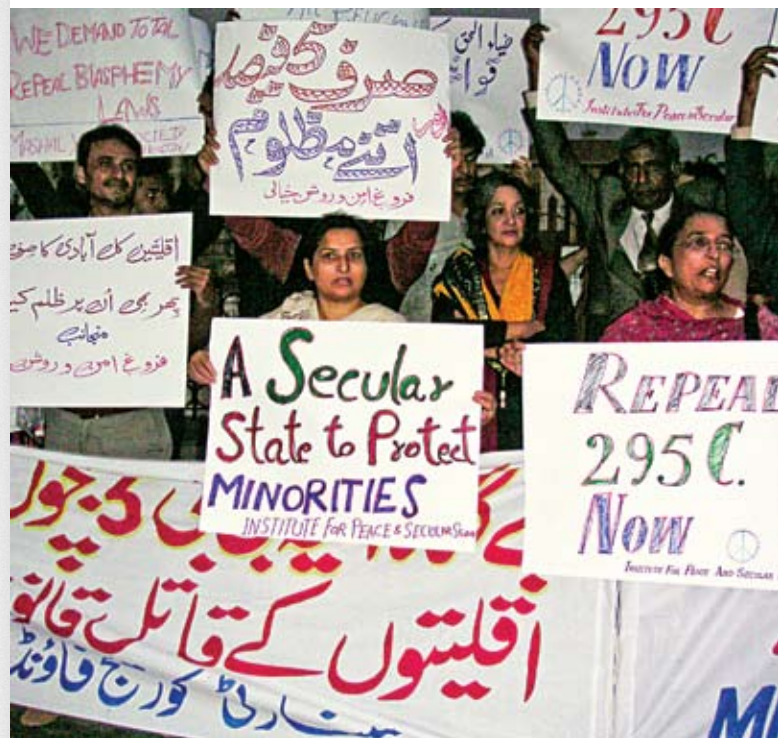 WE DEMAND TOTAL
REPEAL BLASPHEMY
LAWS
MASHAL
صرف 5 فیصد
اور
اتنے مظلوم
فروغ امن و روشن خیالی
ضیاء الحق
295C
NOW
Institute For Peace & Secular
اقلیتیں کل آبادی کا صرف
پھر بھی اُن پر ظلم کیوں
منجانب
فروغ امن و روشن
A Secular
State to Protect
MINORITIES
INSTITUTE FOR PEACE & SECULAR
REPEAL
295 C.
NOW
INSTITUTE FOR PEACE AND SECULAR
اقلیتوں کے قاتل
مینارٹی کورج فاؤنڈ
M